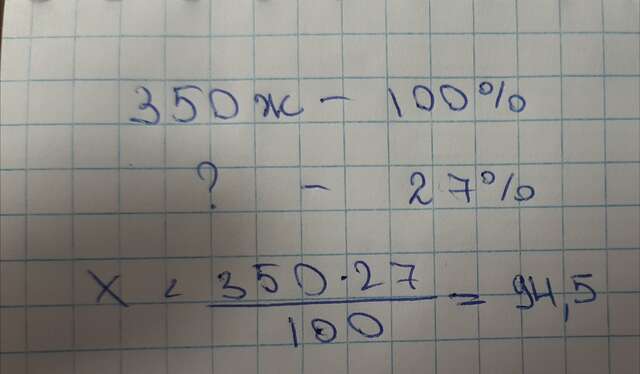 350ж - 100%
? - 27%
x = 350·27/100 = 94,5